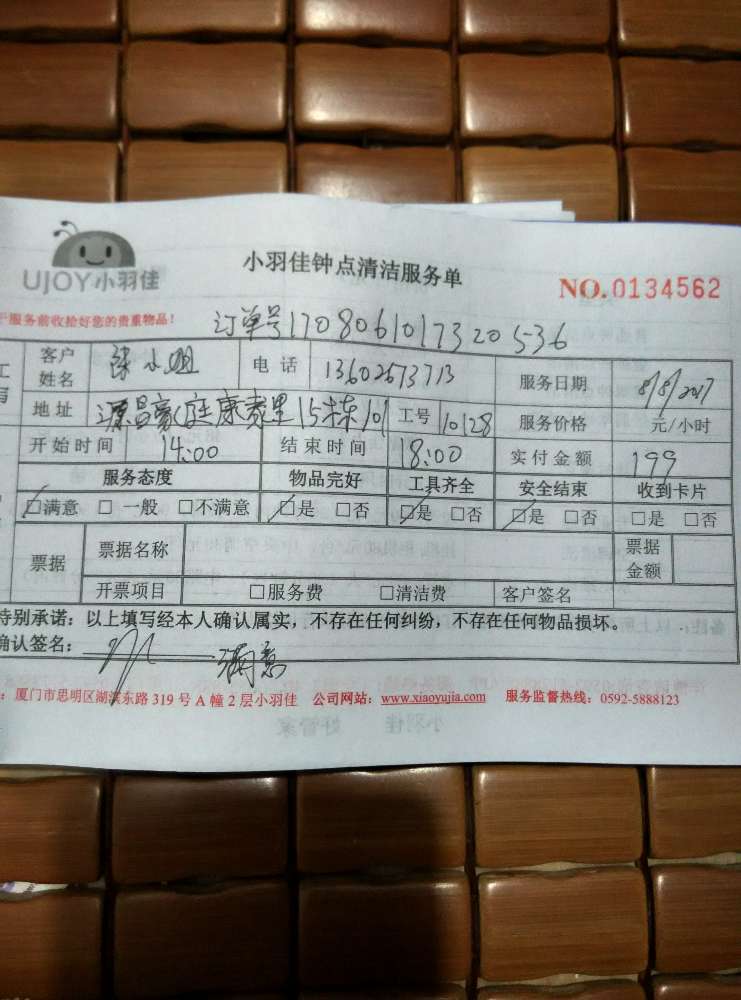 UJOY小羽佳
小羽佳钟点清洁服务单
NO.0134562
服务前收拾好您的贵重物品！
订单号170806101732053​6
客户姓名 小姐 电话 13602673713 服务日期 8/8/2017
地址 源昌豪庭康泰里15栋101 工号 10128 服务价格 元/小时
开始时间 14:00 结束时间 18:00 实付金额 199
服务态度 物品完好 工具齐全 安全结束 收到卡片
☑满意 □一般 □不满意 ☑是 □否 ☑是 □否 ☑是 □否 □是 □否
票据 票据名称 票据金额
开票项目 □服务费 □清洁费 客户签名
特别承诺：以上填写经本人确认属实，不存在任何纠纷，不存在任何物品损坏。
确认签名： 满意
：厦门市思明区湖滨东路319号A幢2层小羽佳 公司网站：www.xiaoyujia.com 服务监督热线：0592-5888123